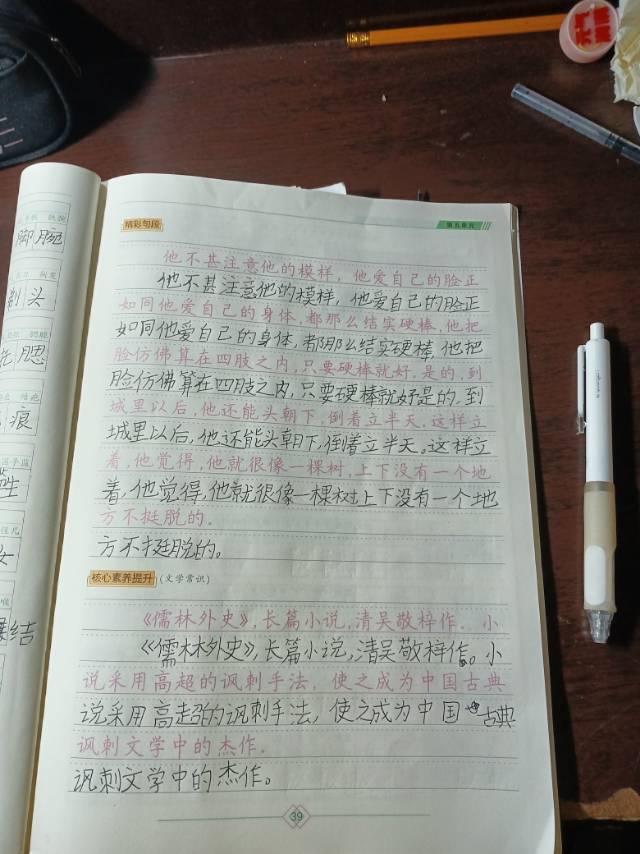 脚腕
剃头
腮
痕
性
女
结
精彩句段
第五单元
他不甚注意他的模样，他爱自己的脸正
他不甚注意他的模样，他爱自己的脸正
如同他爱自己的身体，都那么结实硬棒。他把
如同他爱自己的身体，都那么结实硬棒，他把
脸仿佛算在四肢之内，只要硬棒就好。是的，到
脸仿佛算在四肢之内，只要硬棒就好是的，到
城里以后，他还能头朝下，倒着立半天。这样立
城里以后，他还能头朝下，倒着立半天。这样立
着，他觉得，他就很像一棵树，上下没有一个地
着，他觉得，他就很像一棵树上下没有一个地
方不挺脱的。
方不挺脱的。
核心素养提升（文学常识）
《儒林外史》，长篇小说，清吴敬梓作。小
《儒林外史》，长篇小说，清吴敬梓作。小
说采用高超的讽刺手法，使之成为中国古典
说采用高超的讽刺手法，使之成为中国古典
讽刺文学中的杰作。
讽刺文学中的杰作。
39